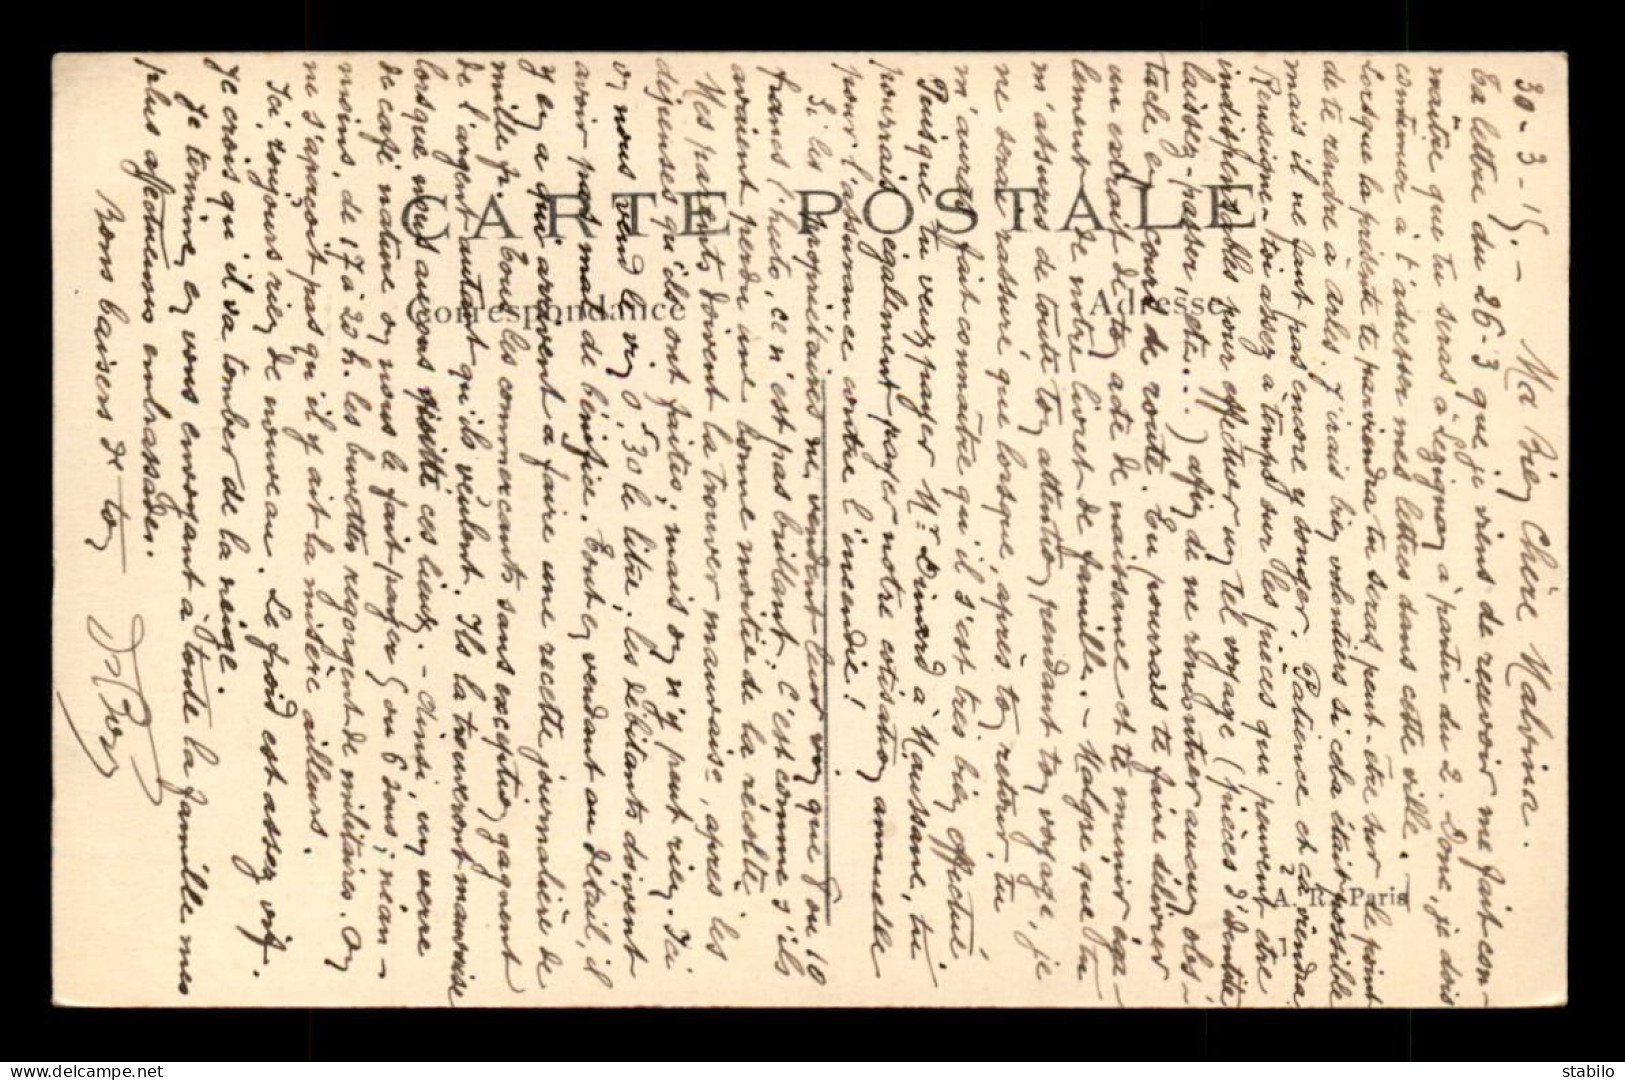 30-3-15.- Ma Bien Chère Malvina.
Ta lettre du 26-3 que je viens de recevoir me fait con-
naître que tu seras à à partir du 2. Donc, je dois
continuer à t'adresser mes lettres dans cette ville.
Lorsque la présente te parviendra tu seras peut-être sur le point
de te rendre à Arles. J'irais bien volontiers si cela était possible
mais il ne faut pas encore y songer. Patience et ça viendra
Renseigne-toi assez à temps sur les pièces qui peuvent être
indispensables pour effectuer un tel voyage (pièces d'identité
laissez-passer, etc...) afin de ne rencontrer aucun obs-
tacle en cours de route. Tu pourrais te faire délivrer
un extrait de ton acte de naissance et te munir éga-
lement de notre livret de famille. - Malgré que tu
m'absures de toute ton attention pendant ton voyage, je
ne serai rassuré que lorsque, après ton retour, tu
m'auras fait connaître qu'il s'est très bien effectué
Puisque tu veux payer Mr Dinard à Maussane, tu
pourrais également payer notre cotisation annuelle
pour l'assurance contre l'incendie!
Si les propriétaires ne vendent leur vin que 8 ou 10
francs l'hecto, ce n'est pas brillant. C'est comme s'ils
avaient perdu une bonne moitié de la récolte
Mes parents doivent la trouver mauvaise, après les
dépenses qu'ils ont faites; mais on n'y peut rien. Ici
on nous vend le vin 0f,30 le litre; les débitants doivent
avoir pas mal de bénéfice. Tout en vendant au détail, il
y en a qui arrivent à faire une recette journalière de
mille fr. Tous les commerçants sans exception gagnent
de l'argent autant qu'ils veulent. Ils la trouveront mauvaise
lorsque nous aurons quitté ces lieux. - Ainsi, un verre
de café nature on nous le fait payer 5 ou 6 sous; néan-
moins, de 17 à 20 h. les buvettes regorgent de militaires. On
ne s'aperçoit pas qu'il y ait la misère ailleurs.
Ici, toujours rien de nouveau. Le froid est assez vif.
Je crois qu'il va tomber de la neige.
Je termine en vous envoyant à toute la famille mes
plus affectueuses embrassades.
Bons baisers de ton
CARTE POSTALE
Correspondance
Adresse
A. R. Paris